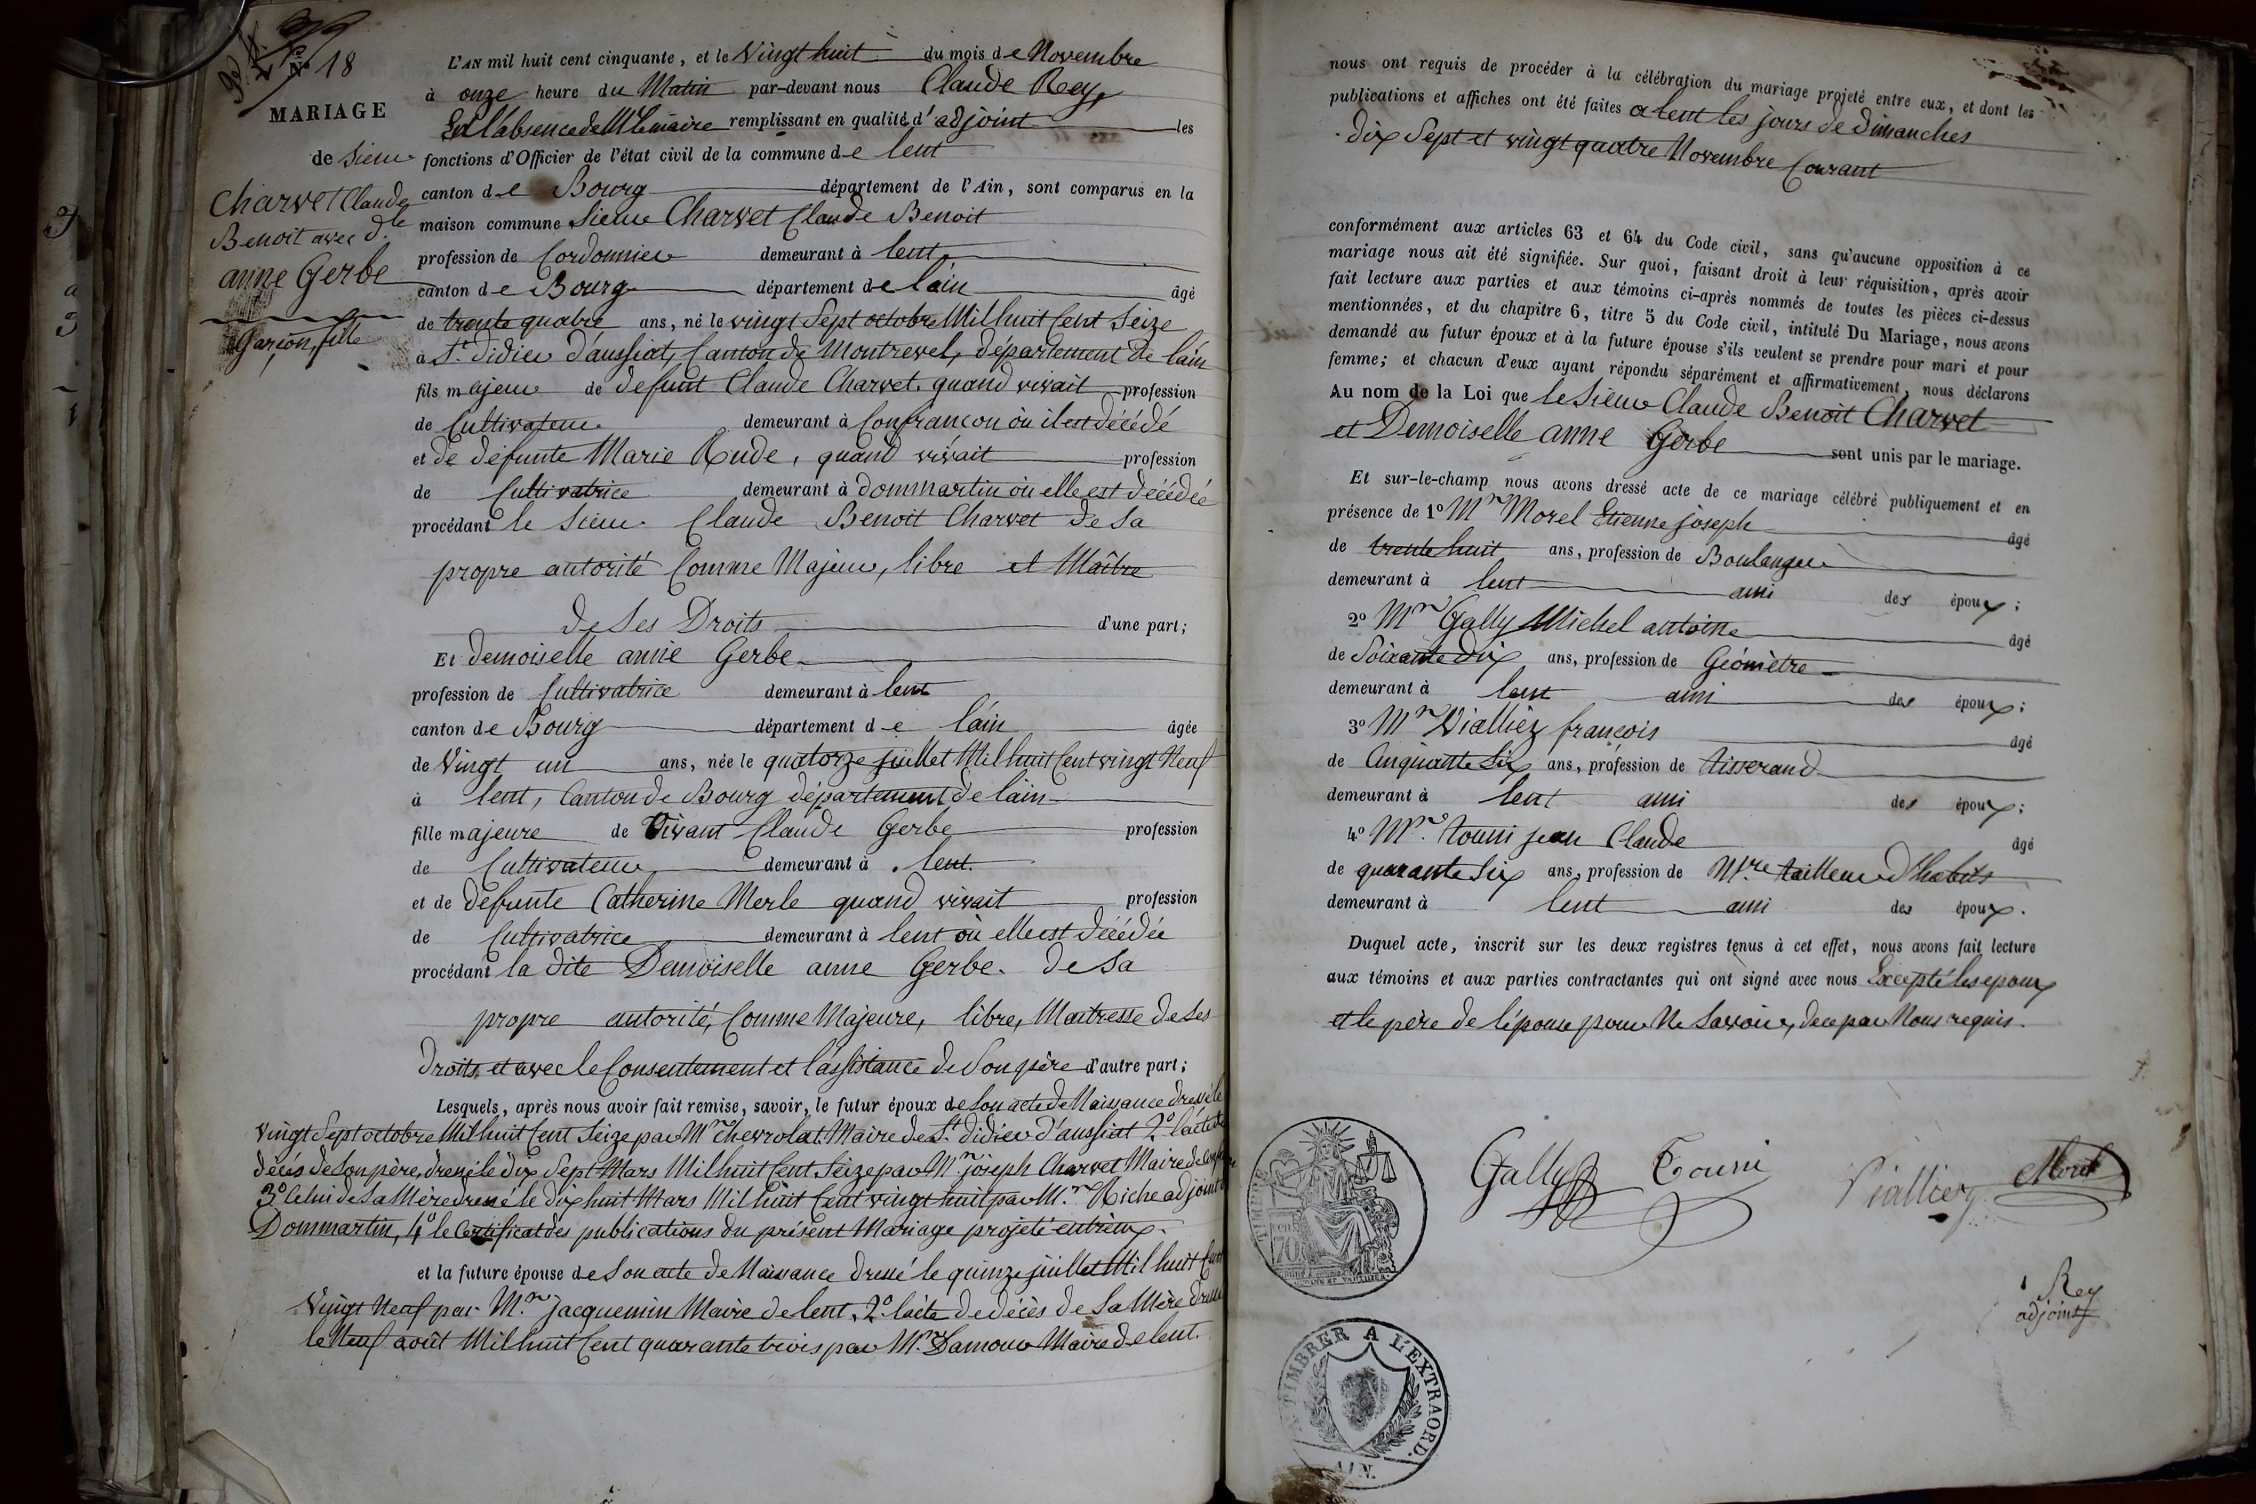 N° 18
MARIAGE
de Sieur
Charvet Claude
Benoit avec dlle
anne Gerbe
Garçon, fille
L'AN mil huit cent cinquante, et le Vingt huit du mois de Novembre
à onze heure du Matin par-devant nous Claude Rey,
En l'absence de Mr le maire remplissant en qualité d'adjoint les
fonctions d'Officier de l'état civil de la commune de lent
canton de Bourg département de l'Ain, sont comparus en la
maison commune Sieur Charvet Claude Benoit
profession de Cordonnier demeurant à lent
canton de Bourg département de lain âgé
de trente quatre ans, né le vingt Sept octobre Mil huit Cent Seize
à St didier d'aussiat, Canton de Montrevel, département de lain
fils majeur de defunt Claude Charvet quand vivait profession
de Cultivateur demeurant à Confrançon où il est décédé
et de défunte Marie Rude, quand vivait profession
de Cultivatrice demeurant à dommartin où elle est décédée
procédant le Sieur Claude Benoit Charvet de Sa
propre autorité Comme Majeur, libre et Maître
de Ses Droits d'une part;
ET demoiselle anne Gerbe
profession de Cultivatrice demeurant à lent
canton de Bourg département de lain âgée
de Vingt un ans, née le quatorze juillet Mil huit Cent vingt Neuf
à lent, Canton de Bourg département de lain
fille majeure de Vivant Claude Gerbe profession
de Cultivateur demeurant à lent.
et de defunte Catherine Merle quand vivait profession
de Cultivatrice demeurant à lent où elle est décédée
procédant la dite Demoiselle anne Gerbe. de Sa
propre autorité, Comme Majeure, libre, Maitresse de Ses
Droits, et avec le Consentement et l'assistance de Son père d'autre part;
Lesquels, après nous avoir fait remise, savoir, le futur époux de Son acte de Naissance dressé le
Vingt Sept octobre Mil huit Cent Seize par Mr Chevrolat Maire de St didier d'aussiat 2° l'acte de
décès de Son père, dressé le dix Sept Mars Mil huit Cent Seize par Mr joseph Charvet Maire de
3° Celui de Sa Mère dressé le dix huit Mars Mil huit Cent vingt huit par Mr Riche adjoint
Dommartin, 4° le Certificat des publications du présent Mariage projeté entr'eux.
et la future épouse de Son acte de Naissance dressé le quinze juillet Mil huit Cent
Vingt Neuf par Mr Jacquemin Maire de lent, 2° l'acte de décès de Sa Mère dressé
le Neuf août Mil huit Cent quarante trois par Mr Damour Maire de lent.
nous ont requis de procéder à la célébration du mariage projeté entre eux, et dont les
publications et affiches ont été faites a lent les jours de dimanches
dix Sept et vingt quatre Novembre Courant
conformément aux articles 63 et 64 du Code civil, sans qu'aucune opposition à ce
mariage nous ait été signifiée. Sur quoi, faisant droit à leur réquisition, après avoir
fait lecture aux parties et aux témoins ci-après nommés de toutes les pièces ci-dessus
mentionnées, et du chapitre 6, titre 5 du Code civil, intitulé Du Mariage, nous avons
demandé au futur époux et à la future épouse s'ils veulent se prendre pour mari et pour
femme; et chacun d'eux ayant répondu séparément et affirmativement, nous déclarons
Au nom de la Loi que le Sieur Claude Benoit Charvet
et Demoiselle anne Gerbe sont unis par le mariage.
Et sur-le-champ nous avons dressé acte de ce mariage célébré publiquement et en
présence de 1° Mr Morel Etienne joseph âgé
de trente huit ans, profession de Boulanger
demeurant à lent ami des époux;
2° Mr Gally Michel antoine âgé
de Soixante dix ans, profession de Géomètre
demeurant à lent ami des époux;
3° Mr Vialliez françois âgé
de Cinquante Six ans, profession de tisserand
demeurant à lent ami des époux;
4° Mr touni jean Claude âgé
de quarante Six ans, profession de Mre tailleur d'habits
demeurant à lent ami des époux.
Duquel acte, inscrit sur les deux registres tenus à cet effet, nous avons fait lecture
aux témoins et aux parties contractantes qui ont signé avec nous Excepté les epoux
et le père de l'épouse pour Ne Savoir, de ce par Nous requis.
Gally Touni Vialliez Morel
Rey
adjoint
TIMBRE
70
TIMBRER A L'EXTRAORD.
AIN.